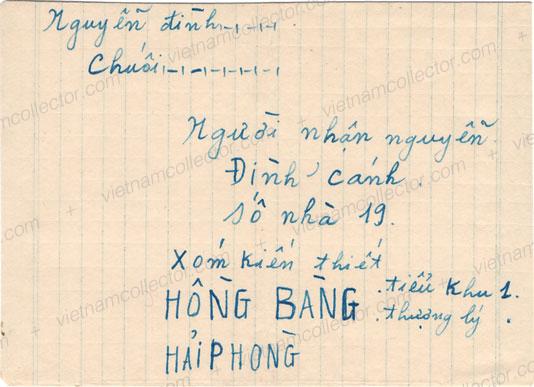 Nguyễn đình-ı-ı-ı-ı
Chuối-ı-ı-ı-ı-ı-ı
Người nhận nguyễn
Đình cánh.
số nhà 19.
xóm kiến thiết
HỒNG BÀNG .tiểu khu 1.
.thượng lý .
HẢI PHÒNG
vietnamcollector.com